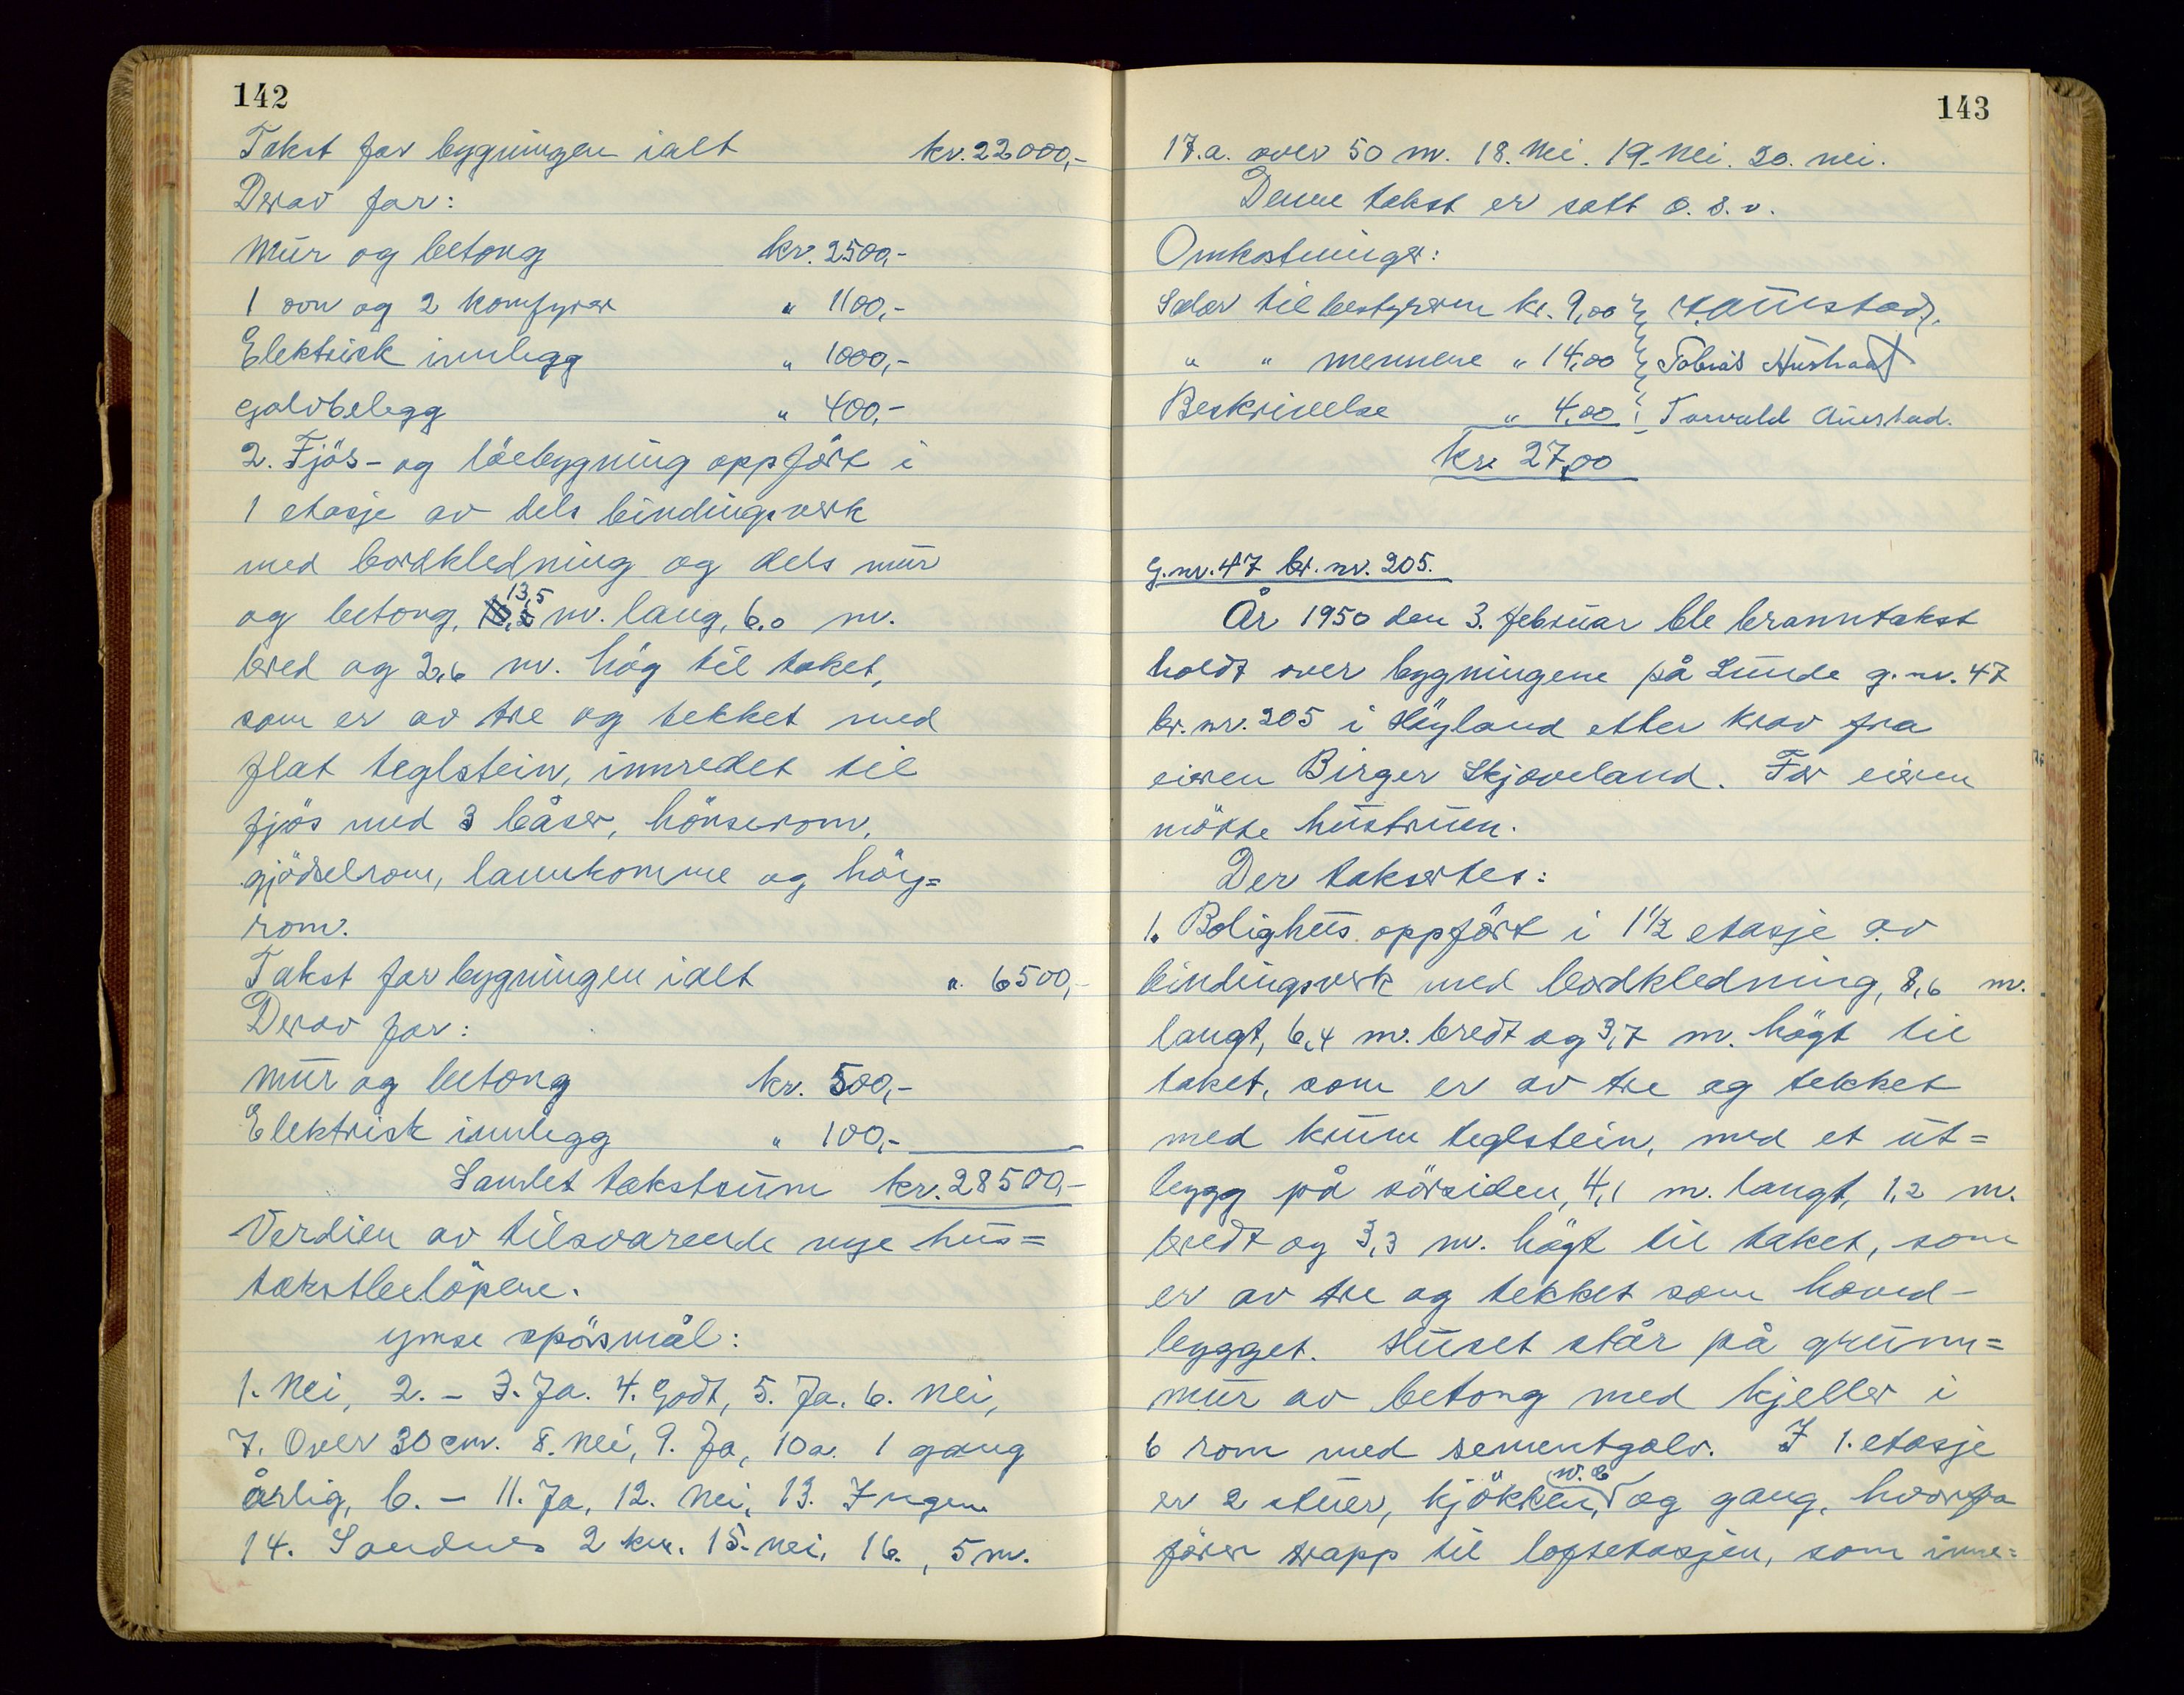 142
Takst for bygningen ialt kr. 22000,-
Derav for:
Mur og betong kr. 2500,-
1 ovn og 2 komfyrer " 1100,-
Elektrisk innlegg " 1000,-
Golvbelegg " 400,-
2. Fjös- og löebygning oppfört i
1 etasje av dels bindingsverk
med bordkledning og dels mur
og betong, 13,5 m. lang, 6,0 m.
bred og 2,6 m. hög til taket,
som er av tre og tekket med
flat teglstein, innredet til
fjös med 3 båser, hönserom,
gjödselrom, lannkomme og höy=
rom.
Takst for bygningen ialt " 6500,-
Derav for:
Mur og betong kr. 500,-
Elektrisk innlegg " 100,-
Samlet takstsum kr. 28500,-
Verdien av tilsvarende nye hus=
takstbelöpene.
Ymse spörsmål:
1. Nei, 2. - 3. Ja. 4. Godt, 5. Ja. 6. Nei,
7. Over 30 cm. 8. Nei, 9. Ja, 10a. 1 gang
årlig, b. - 11. Ja, 12. Nei, 13. Ingen
14. Sandnes 2 km. 15. nei, 16. , 5 m.
143
17.a. over 50 m. 18. Nei. 19. Nei. 20. nei.
Denne takst er satt o.s.v.
Omkostninger:
Salær til bestyreren kr. 9,00
" " mennene " 14,00 Tobias Austraat
Beskrivelse " 4,00 Torvald Auestad.
kr. 27,00
G.nr. 47 br. nr. 205.
År 1950 den 3. februar ble branntakst
holdt over bygningene på Lunde g.nr. 47
br. nr. 205 i Höyland etter krav fra
eieren Birger Skjæveland. For eieren
mötte hustruen.
Der takseretes:
1. Bolighus oppfört i 1 1/2 etasje av
bindingsverk med bordkledning, 8,6 m.
langt, 6,4 m. bredt og 3,7 m. högt til
taket, som er av tre og tekket
med krum teglstein, med et ut=
bygg på sörsiden, 4,1 m. langt, 1,2 m.
bredt og 3,3 m. högt til taket, som
er av tre og tekket som hoved-
bygget. Huset står på grunn=
mur av betong med kjeller i
6 rom med sementgolv. I 1. etasje
er 2 stuer, kjökken, w.c. og gang, hvorfra
förer trapp til loftetasjen, som inne=